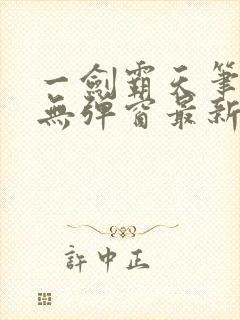 一劍霸天筆
無彈窗最新
許中正